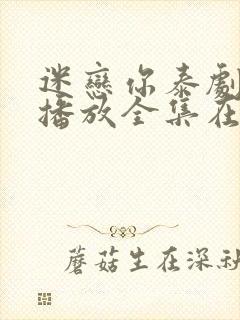 迷戀你泰劇
播放全集在
蘑菇生在深秋